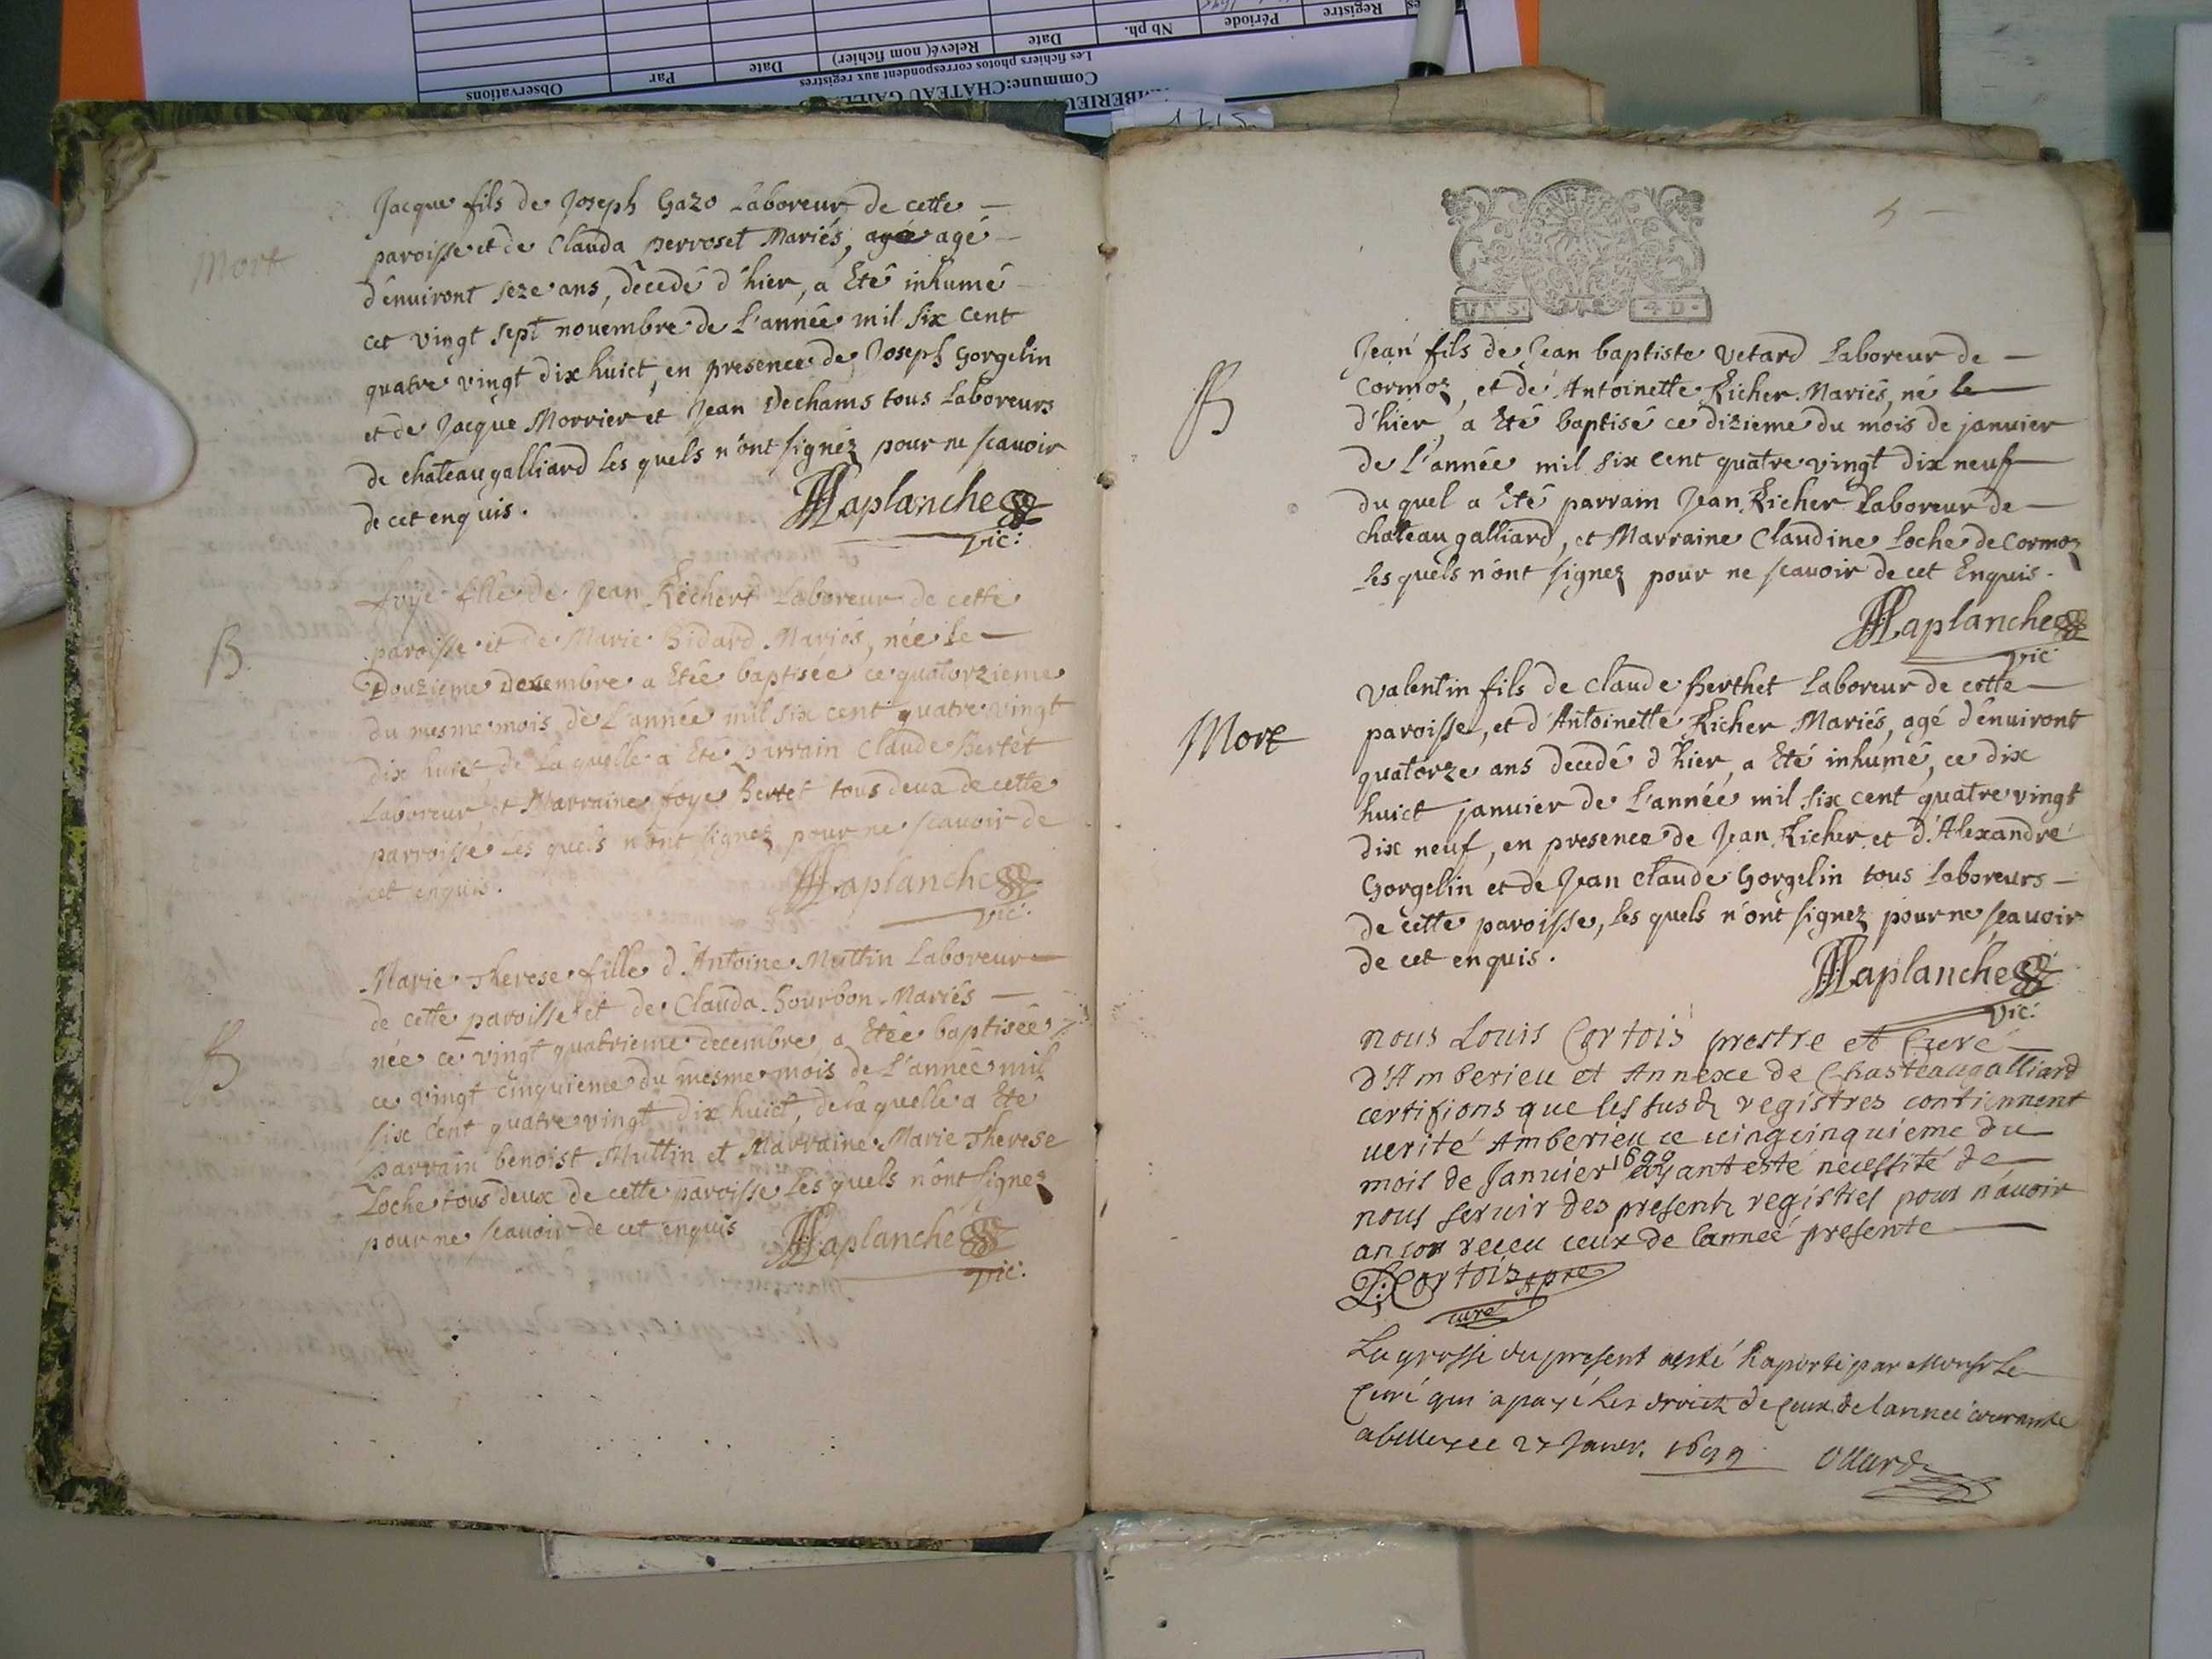 Observations
Par
Date
Relevé( nom fichier)
Date
Nb ph.
Période
Registre
Les fichiers photos correspondent aux registres
Commune:CHÂTEAU GAILL
MBERIEU
1715
Mort
Jacque fils de Joseph Gazo Laboreur de cette
paroisse et de Clauda perroset Mariés, agé agé
d'enuiront seze ans, decedé d'hier, a Eté inhumé
cet vingt sept nouembre de L'année mil six Cent
quatre vingt dix huict, en presence de Joseph Gorgelin
et de Jacque Morrier et Jean Dechams tous Laboreurs
de chateaugalliard les quels n'ont signéz pour ne scauoir
de cet enquis.
Laplanche
vic:
B.
foye fille de Jean Richert Laboreur de cette
paroisse et de Marie Bidard Mariés, née le
Douzieme decembre a Etée baptisée ce quatorzieme
du mesme mois de L'année mil six cent quatre vingt
dix huict de la quelle a Eté parrain Claude Bertet
Laboreur et Marraine foye Bertet tous deux de cette
parroisse les quels n'ont signez pour ne scauoir de
cet enquis.
Laplanche
vic:
B
Marie Therese fille d'Antoine Muttin Laboreur
de cette paroisse et de Clauda Bourbon Mariés
née ce vingt quatrieme decembre a Etée baptisée
ce vingt cinquieme du mesme mois de L'année mil
six Cent quatre vingt dix huict, de la quelle a Eté
parrain benoist Muttin et Marraine Marie Therese
Loche tous deux de cette paroisse les quels n'ont signez
pour ne scauoir de cet enquis
Laplanche
vic:
4 D.
B
Jean fils de Jean baptiste vetard Laboreur de
Cormoz, et de Antoinette Richer Mariés, né le
d'hier, a Eté baptisé ce dizieme du mois de januier
de L'année mil six cent quatre vingt dix neuf
du quel a Eté parrain Jean Richer Laboreur de
chateau galliard, et Marraine Claudine Loche de Cormoz
les quels n'ont signez pour ne scauoir de cet Enquis.
Laplanche
vic
Mort
valentin fils de Claude Berthet Laboreur de cette
paroisse, et d'Antoinette Richer Mariés, agé d'enuiront
quatorze ans decedé d'hier, a Eté inhumé, ce dix
huict januier de L'année mil six cent quatre vingt
dix neuf, en presence de Jean Richer et d'Alexandre
Gorgelin et de Jean Claude Gorgelin tous Laboreurs
de cette paroisse, les quels n'ont signez pour ne scauoir
de cet enquis.
Laplanche
vic:
nous Louis Cortois prestre et Curé
d'Amberieu et Annexe de Chasteaugalliard
certifions que les susd registres contiennent
uerité Amberieu ce uingcinquieme du
mois de Januier 1699 ayant esté necessité de
nous seruir des presents registres pour n'auoir
ancor receu ceux de lannée presente
L: Cortois ptre
curé
La grosse du present aesté Raporté par Monsr Le
Curé qui a payé Les droicts de Ceux de lannee courante
a belley ce 27 Janer. 1699